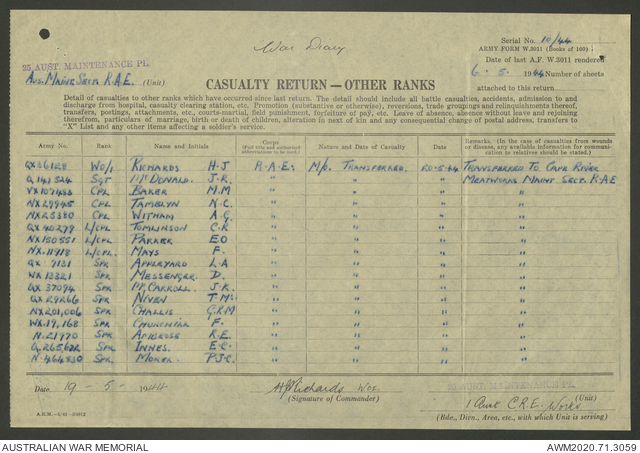 War Diary
Serial No. 10/44
ARMY FORM W.3011 (Books of 100)
23 AUST. MAINTENANCE PL.
Date of last A.F. W.3011 rendered
Aust Maint Sect. R.A.E. (Unit)
6 . 5 . 1944 Number of sheets
CASUALTY RETURN—OTHER RANKS
attached to this return
Detail of casualties to other ranks which have occurred since last return. The detail should include all battle casualties, accidents, admission to and
discharge from hospital, casualty clearing station, etc. Promotions (substantive or otherwise), reversions, trade groupings and relinquishments thereof,
transfers, postings, attachments, etc., courts-martial, field punishment, forfeiture of pay, etc. Leave of absence, absence without leave and rejoining
therefrom, particulars of marriage, birth or death of children, alteration in next of kin and any consequential change of postal address, transfers to
"X" List and any other items affecting a soldier's service.
Army No. Rank Name and Initials Corps Nature and Date of Casualty Date Remarks. (In the case of casualties from wounds or disease, any available information for communication to relatives should be stated.)
QX36128 WO/1 RICHARDS H.J R.A.E. M/o. TRANSFERRED. 20-5-44 TRANSFERRED TO CAPE RIVER
Q 141324 SGT McDONALD. J.R. " " " MEATWORKS MAINT SECT. R.A.E
VX107483 CPL BAKER M.M " " " "
NX29945 CPL TAMBLYN N.C. " " " "
NX25380 CPL WITHAM A.G. " " " "
QX40279 L/CPL TOMLINSON C.R " " " "
NX150551 L/CPL PARKER E.O " " " "
NX.11918 L/CPL. MAYS F. " " " "
QX 9131 SPR APPLEYARD L.A " " " "
WX 13321 SPR MESSENGER D. " " " "
QX 37094 SPR McCARROLL. J.R. " " " "
QX 29266 SPR NIVEN T.Mc " " " "
NX201,006 SPR CHALLIS G.R.M " " " "
WX.19,168 SPR F. " " " "
N.21970 SPR AMBROSE R.E. " " " "
Q.265622 SPR INNES. E.C. " " " "
N.464830 SPR MOKER. P.J.C. " " " "
Date 19 – 5 – 1944
H J Richards WO1.
(Signature of Commander)
23 AUST. MAINTENANCE PL.
(Unit)
1 Aust C.R.E. Works
(Bde., Divn., Area, etc., with which Unit is serving)
AUSTRALIAN WAR MEMORIAL
AWM2020.71.3059